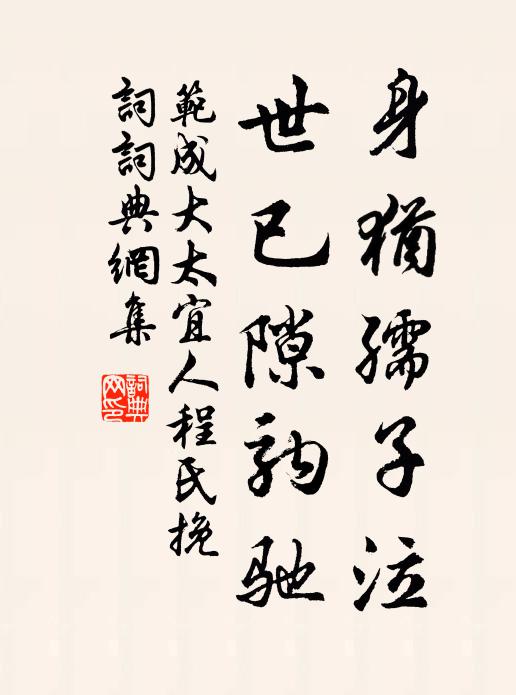 身猶孺子泣
世已隙駒馳
範成大太宜人程氏挽
詞詞典網集
詞典網印